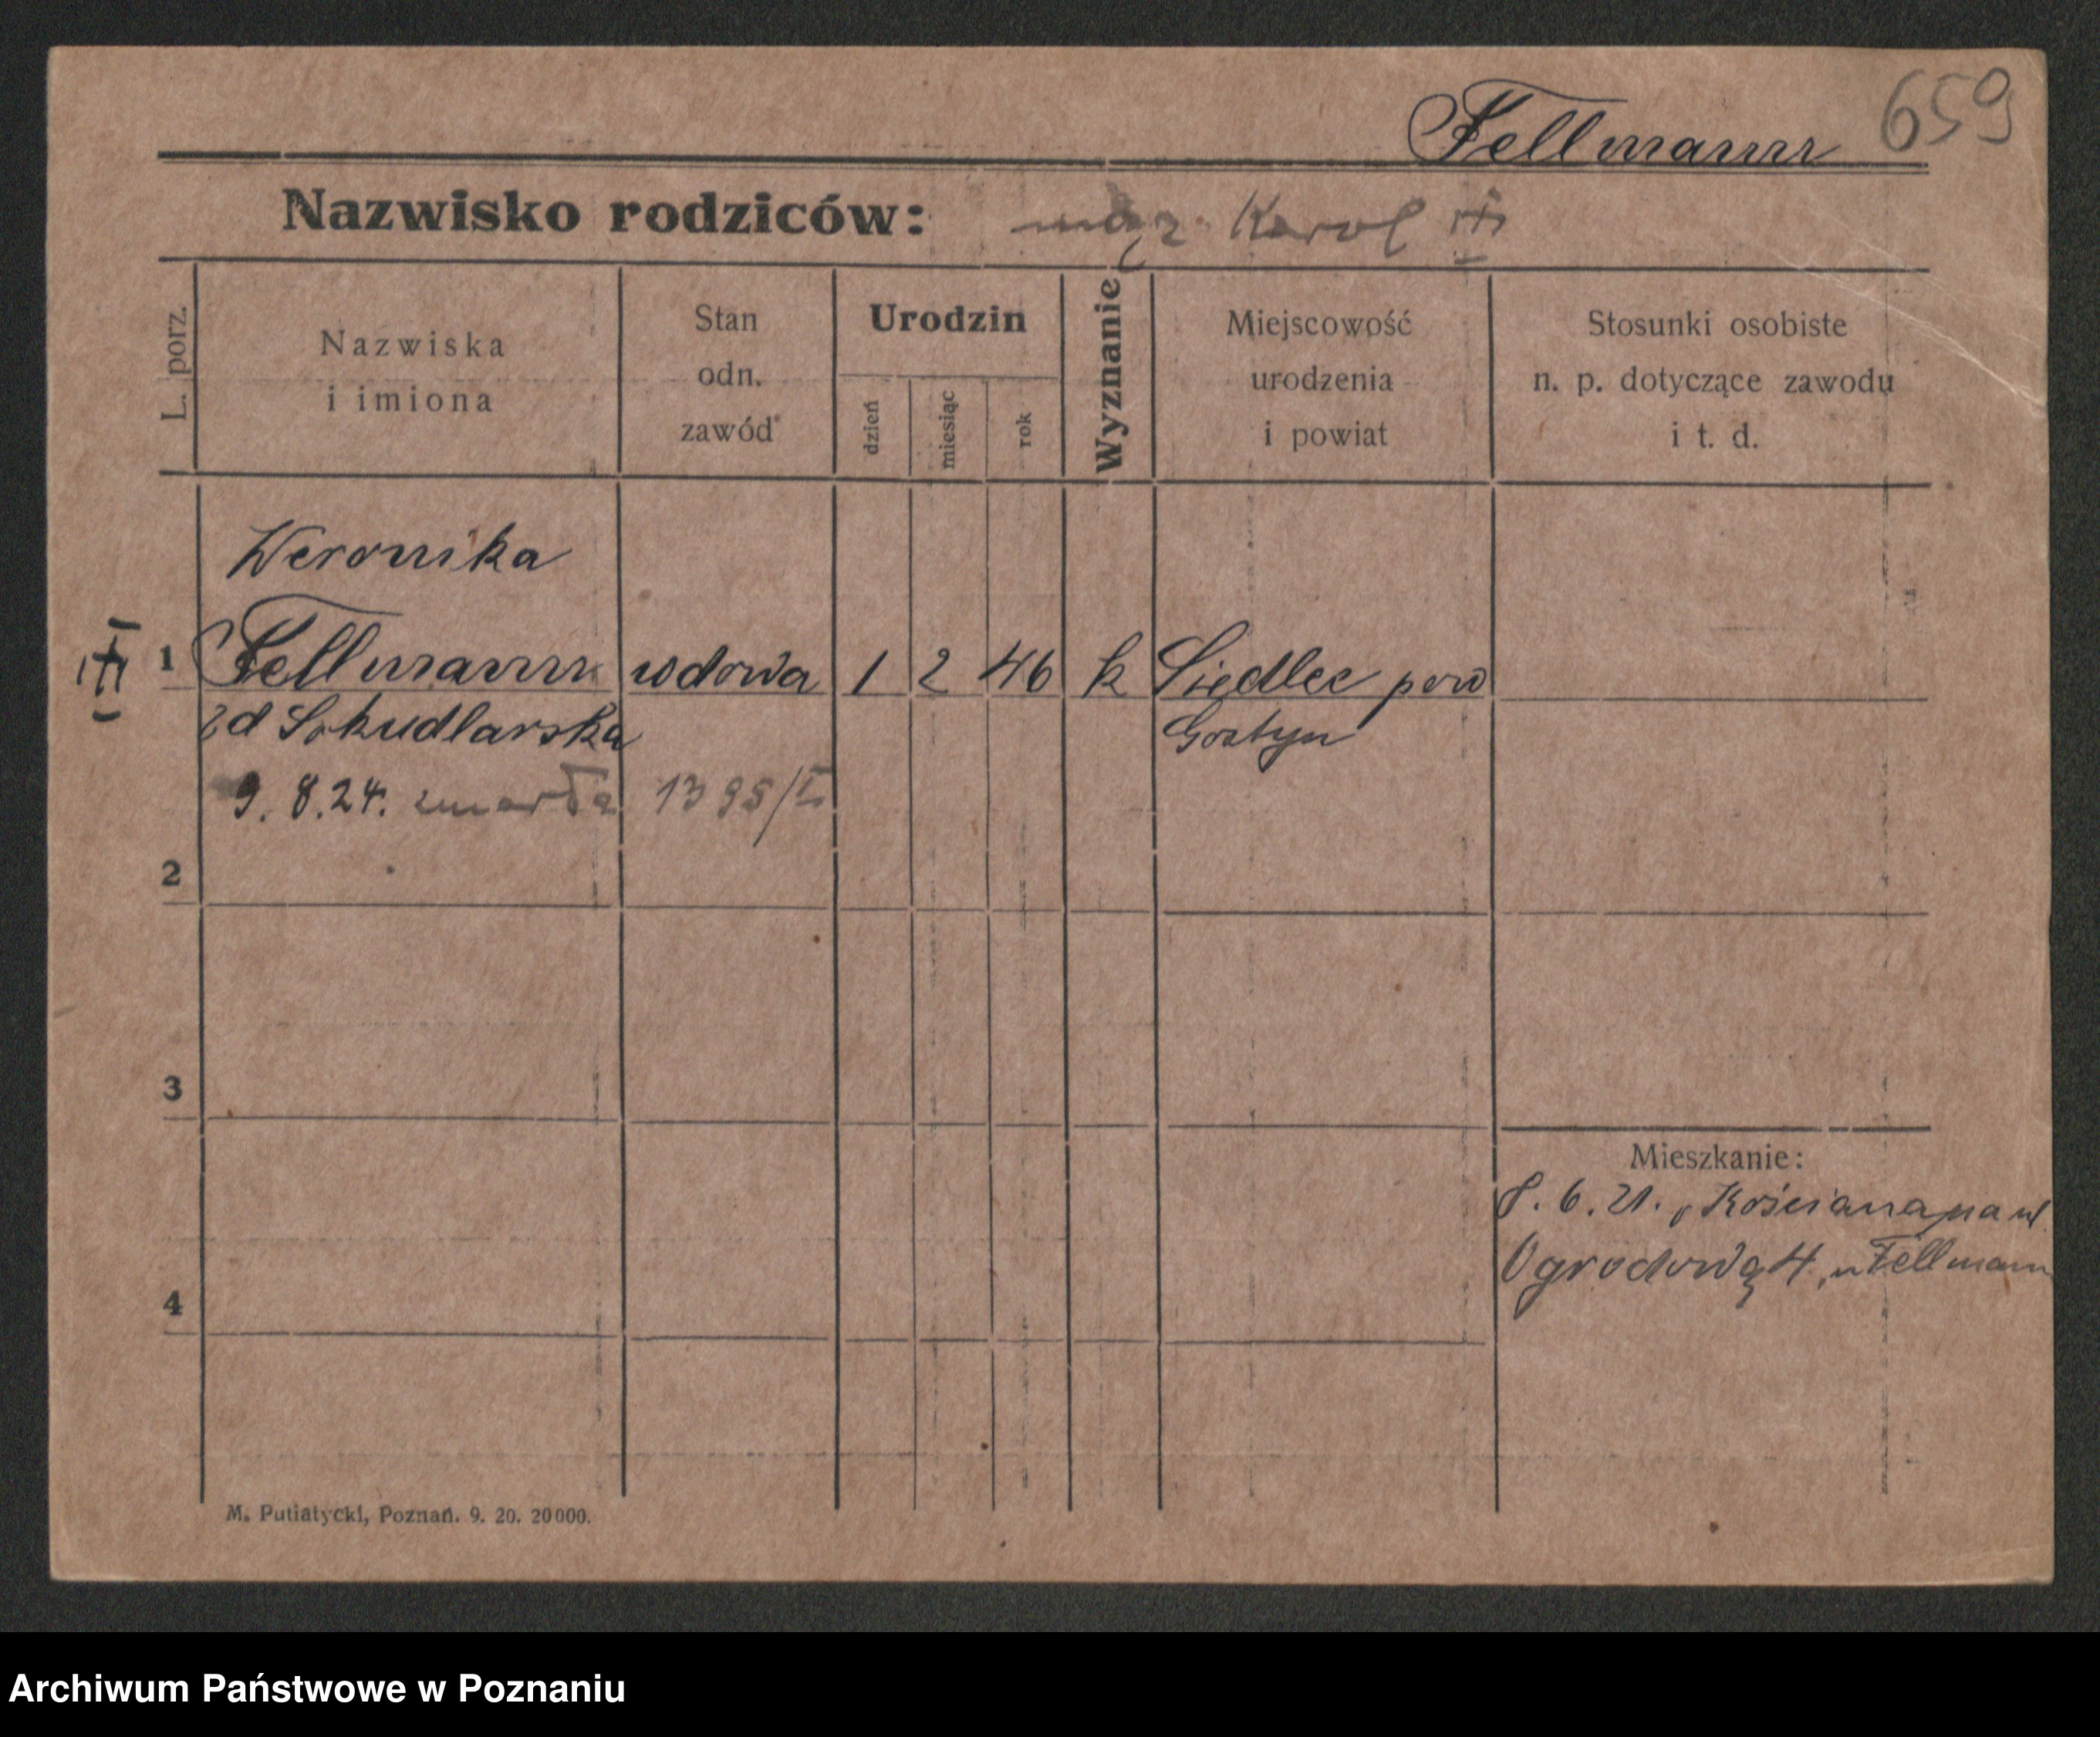 Fellmann 659
Nazwisko rodziców: mąż Karol
L. porz.
Nazwiska
i imiona
Stan
odn.
zawód
Urodzin
dzień
miesiąc
rok
Wyznanie
Miejscowość
urodzenia
i powiat
Stosunki osobiste
n. p. dotyczące zawodu
i t. d.
Weronika
1 Fellmann wdowa 1 2 46 k Siedlec pow
Gostyn
9. 8. 24. zmarła 1395/I
2
3
Mieszkanie:
8. 6. 21. Kościana na ul.
Ogrodową 4, u Fellmann
4
M. Putiatycki, Poznań. 9. 20. 20000.
Archiwum Państwowe w Poznaniu